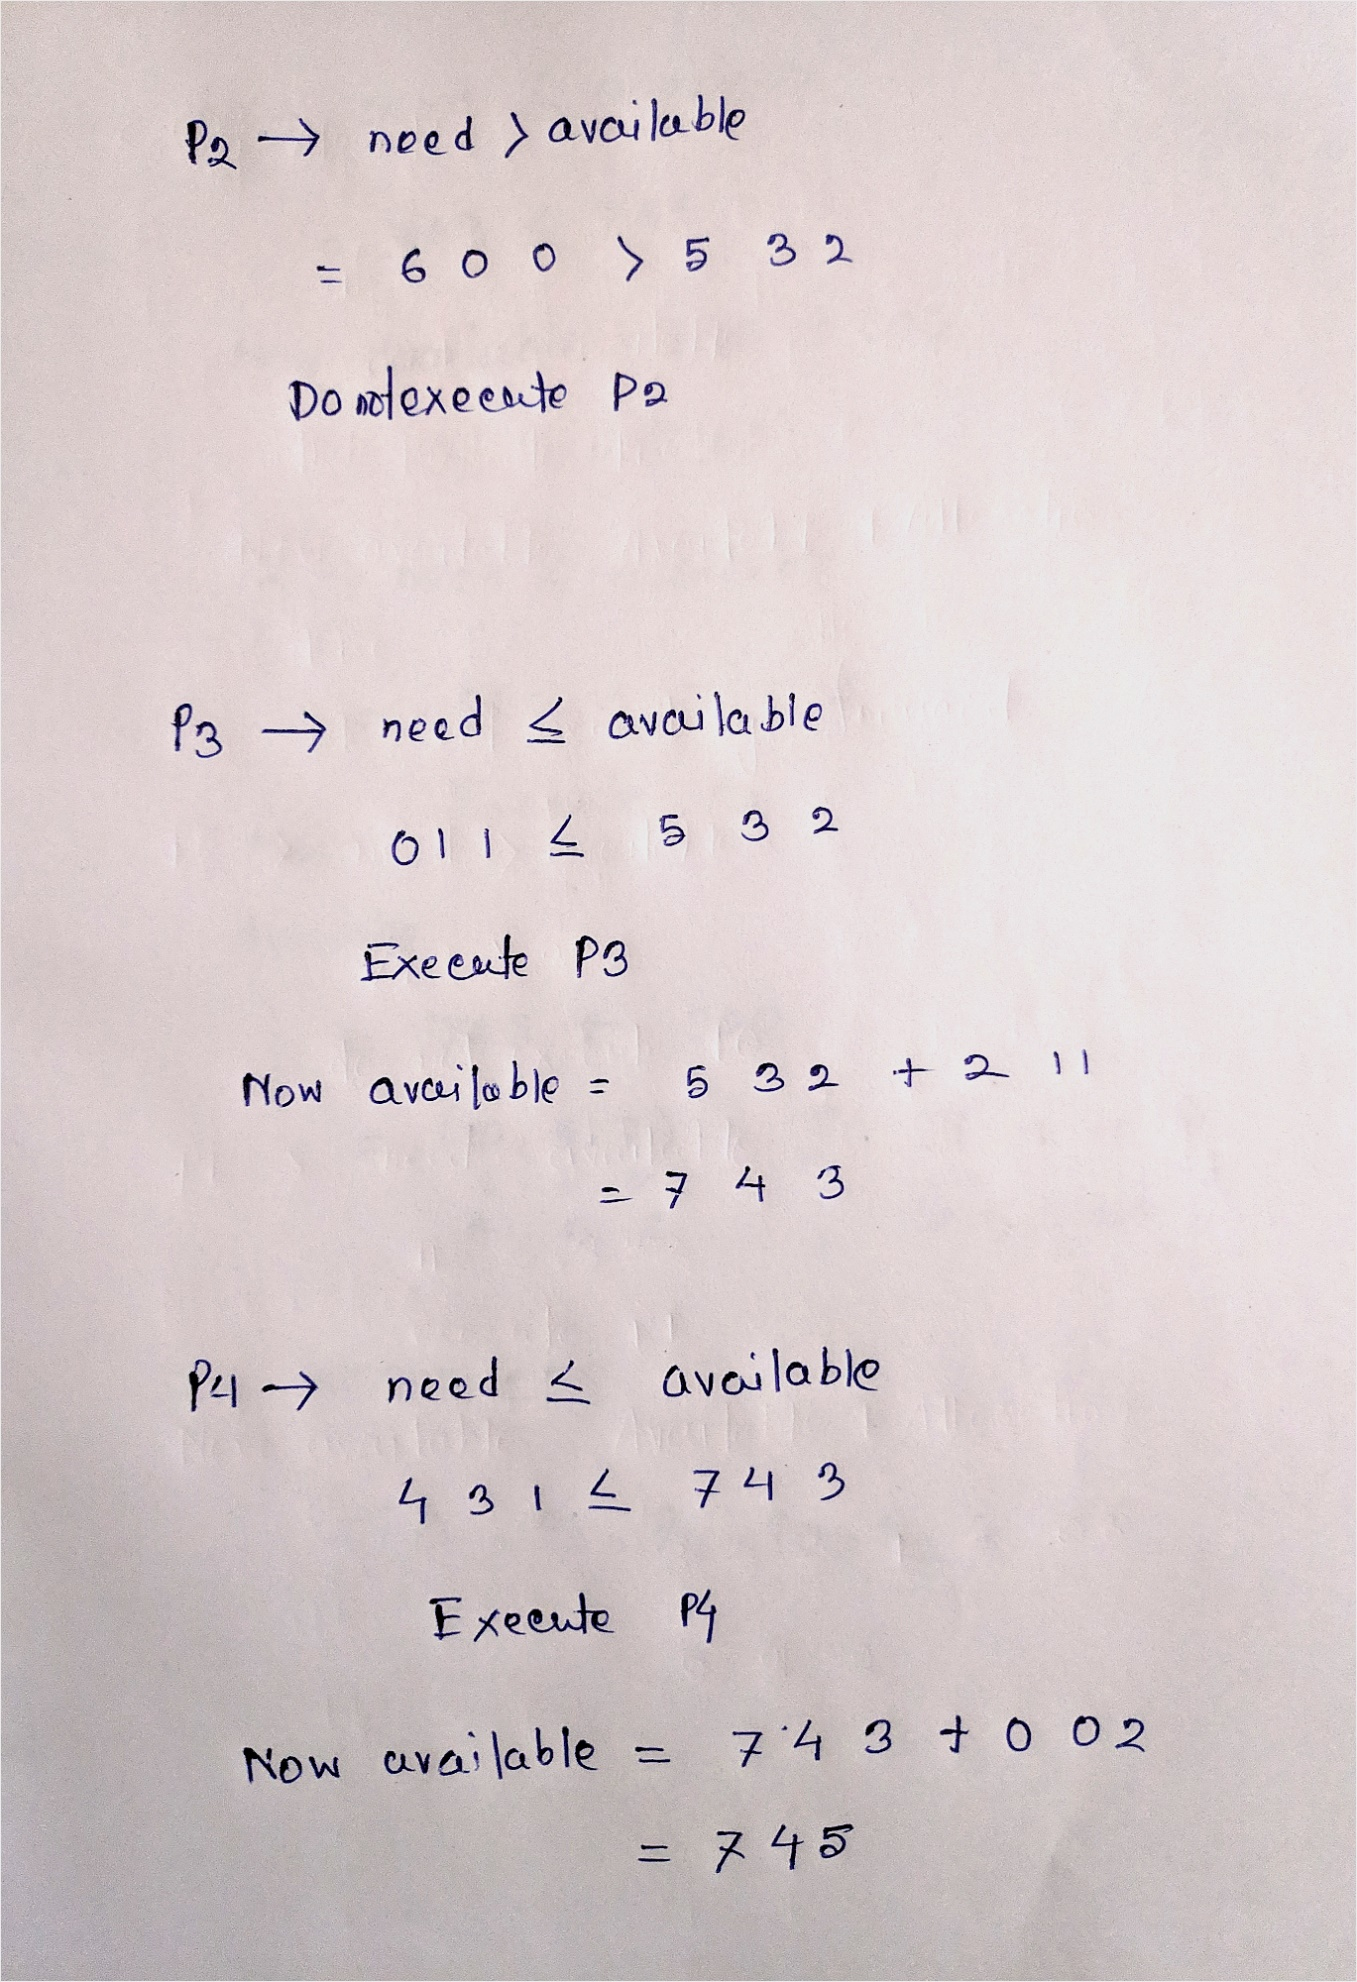 P2 → need > available
= 6 0 0 > 5 3 2
Do not execute P2
P3 → need ≤ available
0 1 1 ≤ 5 3 2
Execute P3
Now available = 5 3 2 + 2 1 1
= 7 4 3
P4 → need ≤ available
4 3 1 ≤ 7 4 3
Execute P4
Now available = 7 4 3 + 0 0 2
= 7 4 5